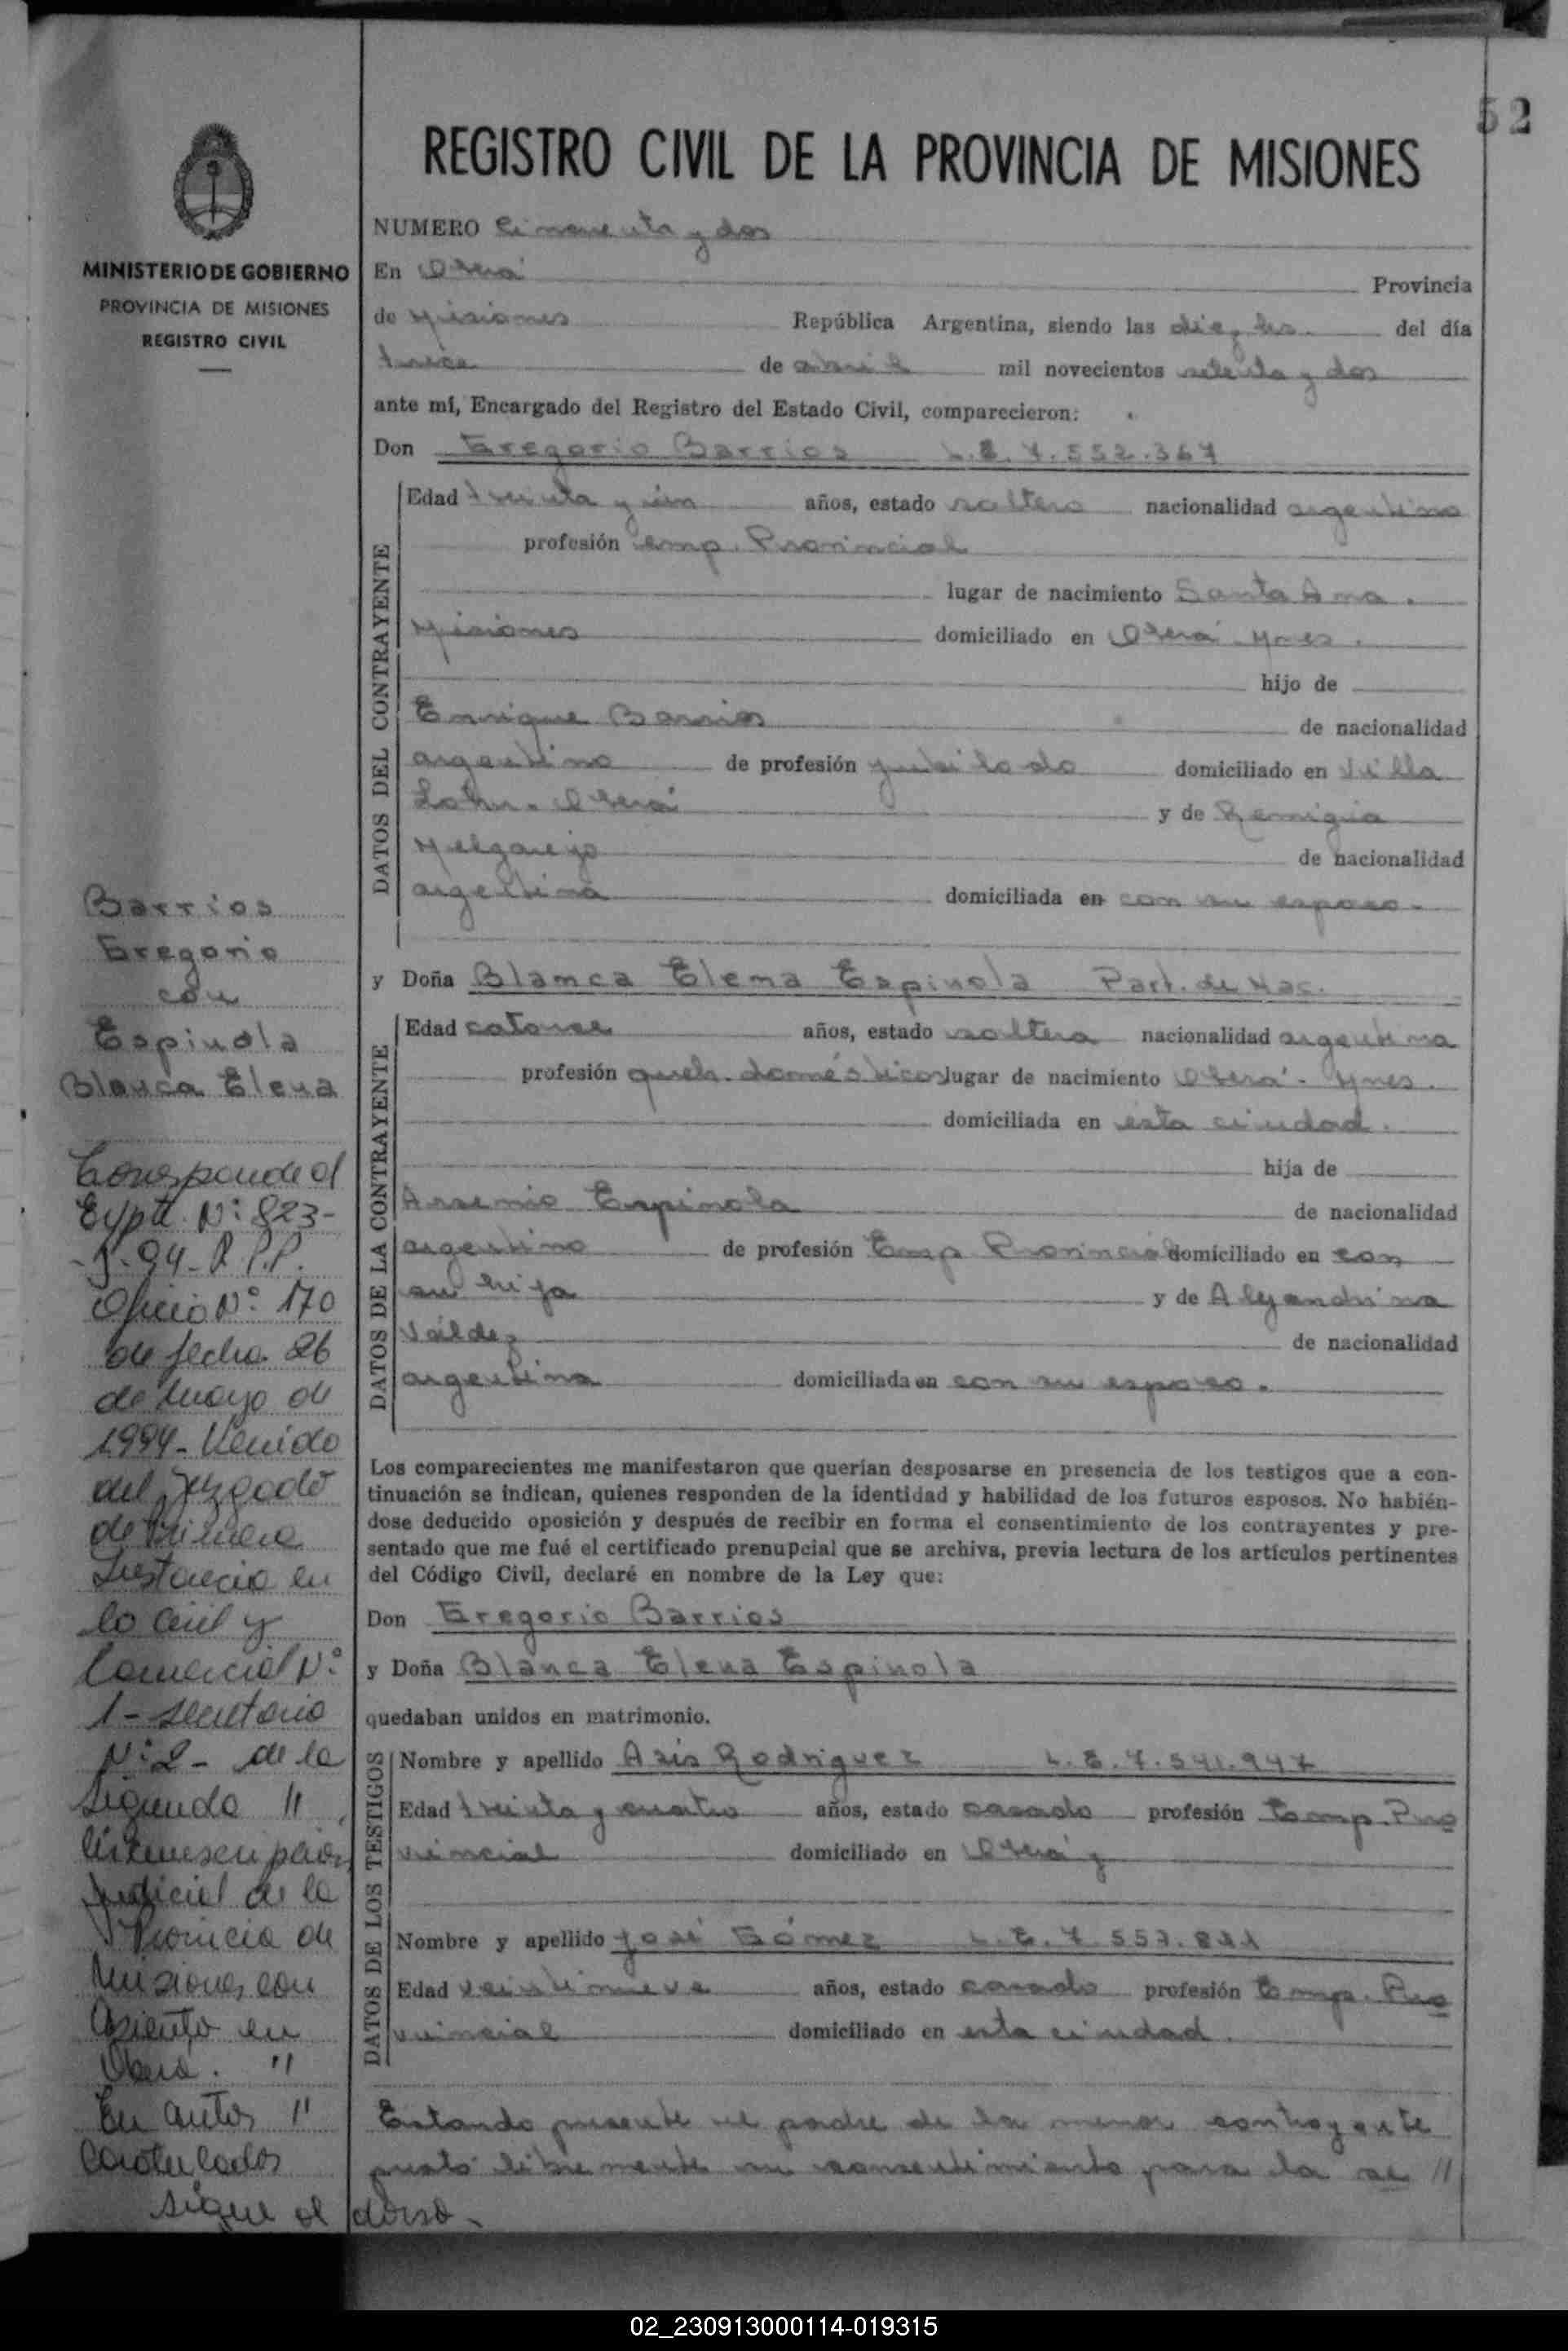 52
REGISTRO CIVIL DE LA PROVINCIA DE MISIONES
MINISTERIO DE GOBIERNO
PROVINCIA DE MISIONES
REGISTRO CIVIL
NUMERO Cincuenta y dos
En Oberá Provincia
de Misiones República Argentina, siendo las diez hs. del día
trece de abril mil novecientos setenta y dos
ante mí, Encargado del Registro del Estado Civil, comparecieron:
Don Gregorio Barrios L.E. 7.552.367
DATOS DEL CONTRAYENTE
Edad treinta y un años, estado soltero nacionalidad argentino
profesión emp. Provincial
lugar de nacimiento Santa Ana.
Misiones domiciliado en Oberá Mnes.
hijo de
Enrique Barrios de nacionalidad
argentino de profesión jubilado domiciliado en Villa
Lohn. Oberá y de Remigia
Melgarejo de nacionalidad
argentina domiciliada en con su esposo.
y Doña Blanca Elena Espinola Part. de Nac.
DATOS DE LA CONTRAYENTE
Edad catorce años, estado soltera nacionalidad argentina
profesión queh. domésticos lugar de nacimiento Oberá. Mnes.
domiciliada en esta ciudad.
hija de
Arsenio Espinola de nacionalidad
argentino de profesión Emp Provincial domiciliado en con
su hija y de Alejandrina
Valdez de nacionalidad
argentina domiciliada en con su esposo.
Los comparecientes me manifestaron que querían desposarse en presencia de los testigos que a con-
tinuación se indican, quienes responden de la identidad y habilidad de los futuros esposos. No habién-
dose deducido oposición y después de recibir en forma el consentimiento de los contrayentes y pre-
sentado que me fué el certificado prenupcial que se archiva, previa lectura de los artículos pertinentes
del Código Civil, declaré en nombre de la Ley que:
Don Gregorio Barrios
y Doña Blanca Elena Espinola
quedaban unidos en matrimonio.
DATOS DE LOS TESTIGOS
Nombre y apellido Asis Rodriguez L.E. 7.541.947
Edad treinta y cuatro años, estado casado profesión Emp. Pro
vincial domiciliado en Oberá y
Nombre y apellido José Gómez L.E. 7.557.841
Edad veintinueve años, estado casado profesión Emp. Pro
vincial domiciliado en esta ciudad.
Estando presente el padre de la menor contrayente
prestó libremente su consentimiento para la se //
Barrios
Gregorio
con
Espinola
Blanca Elena
Corresponde al
Expte. Nº: 823-
-J-94- R.P.P.
Oficio Nº 170
de fecha 26
de mayo de
1994- Venido
del Juzgado
de Primera
Instancia en
lo Civil y
Comercial Nº
1 - secretaria
Nº 2 - de la
Segunda //
Circunscripción
Judicial de la
Provincia de
Misiones con
Asiento en
Oberá. "
En autos "
Caratulados
sigue al dorso-
02_230913000114-019315